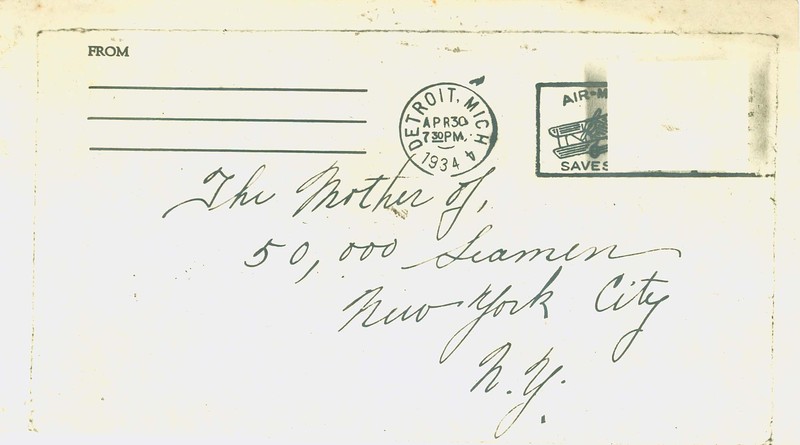 FROM
DETROIT, MICH 4
APR 30
7 30 PM
1934
AIR-M
SAVES
The Mother of,
50,000 Seamen
New York City
N.Y.